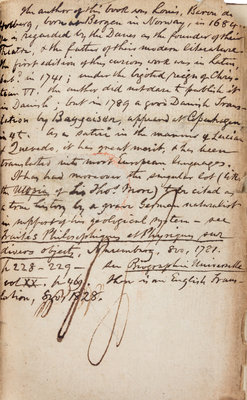 The author of this book was Louis, Baron de
Holberg, born at Bergen in Norway, in 168
& is regarded by the Danes as the founder of their
Theatre, & the father of their modern literature.
The first edition of this curious work was in Latin,
in 1741; under the bigoted reign of Chris-
tian VI. the author did not dare to publish it
in Danish; but in 1789 a good Danish Trans-
lation by Baggesen, appeared at Copenhagen
in 4t. As a satire in the manner of Lucian
& Quevedo, it has great merit, & has been
translated into most European languages.
It has had moreover the singular lot (like
the Utopia of Sir Thos. More) to be cited as
a true history by a grave German naturalist
in support of his geological system – see
Traités Philosophiques et Physiques sur
divers objects, Nuremburg, 8vo, 1781.
p. 228–229 – See Biographie Universelle
vol. XX. p. 469. There is an English Trans-
lation, 8vo. 1828.